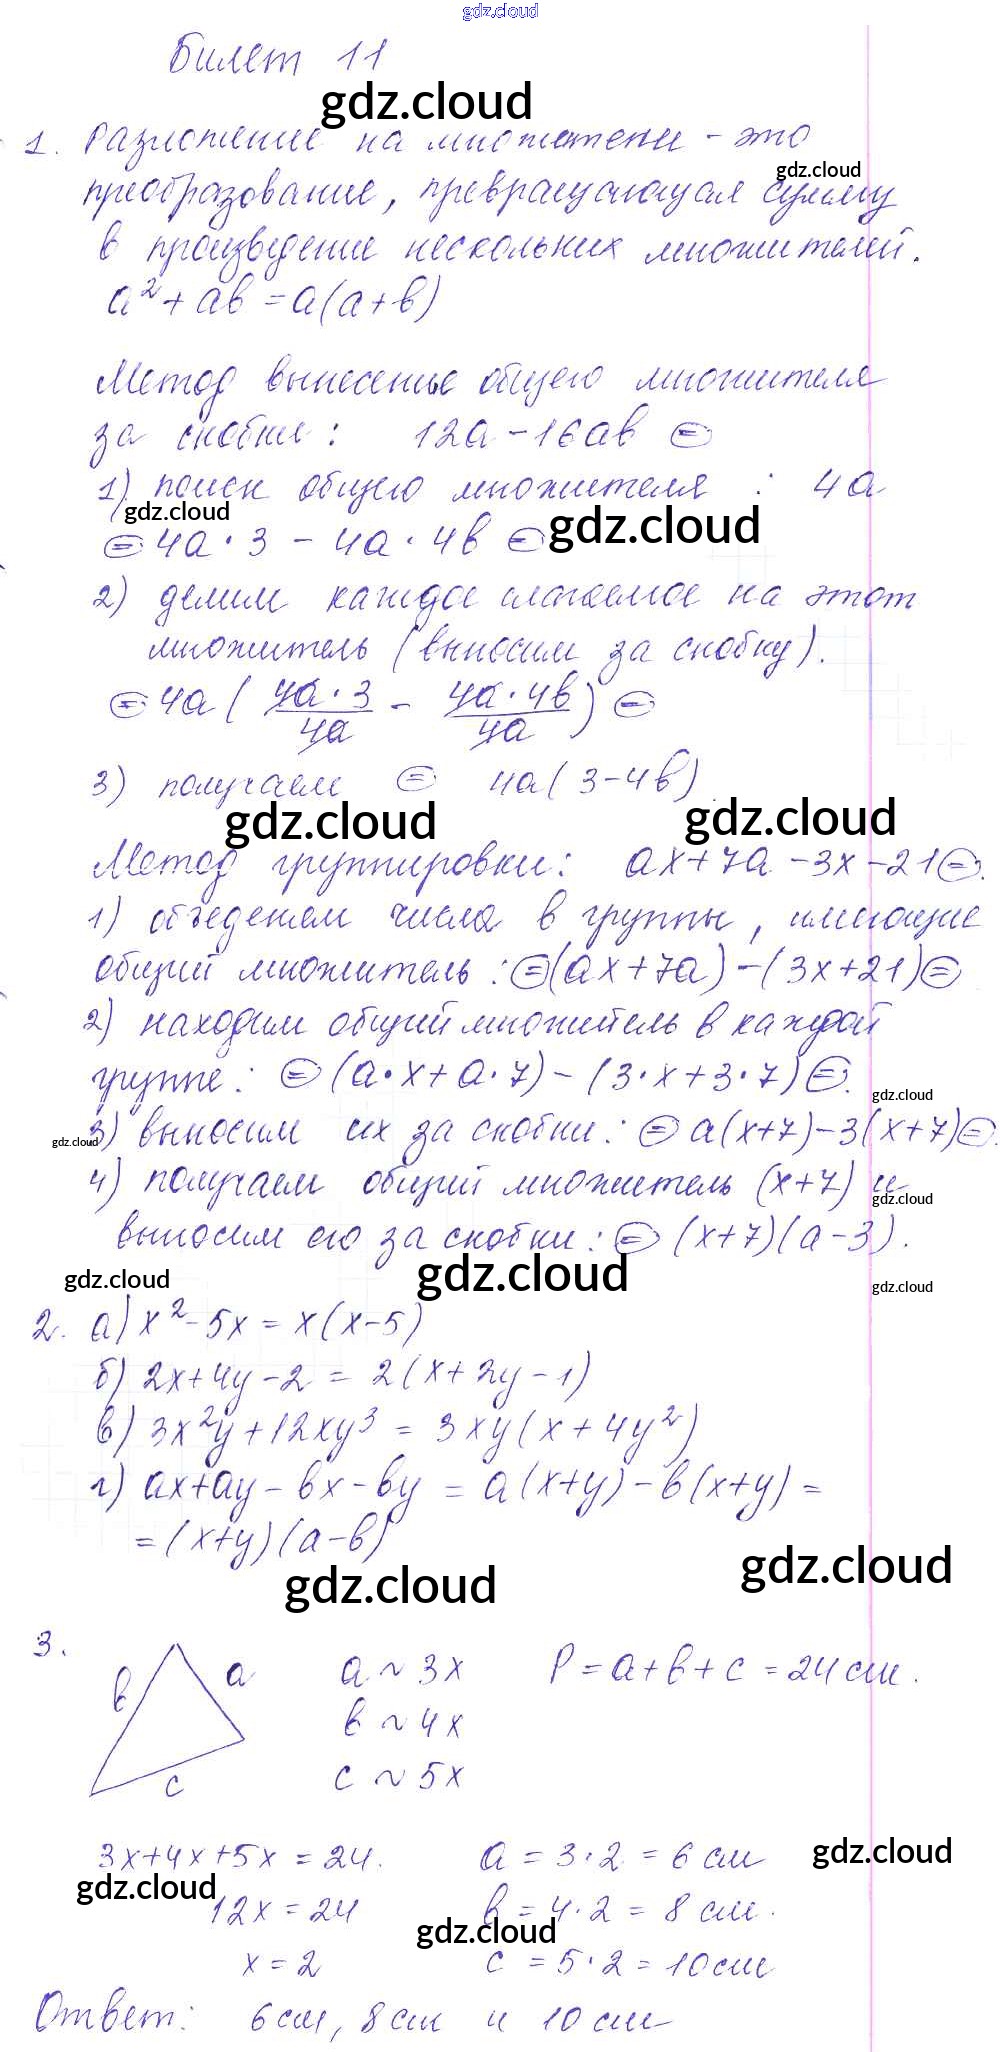 gdz.cloud
Билет 11
gdz.cloud
1. Разложение на множетени - это
gdz.cloud
преобразование, превращающая сумму
в произведение нескольких множителей.
a² + ab = a(a+b)
Метод вынесенье общего множителя
за скобки: 12a - 16ab =
1) поиск общего множителя : 4a
gdz.cloud gdz.cloud
= 4a · 3 - 4a · 4b =
2) делим каждое слагаемое на этот
множитель (выносим за скобку).
= 4a ( 4a · 3 / 4a - 4a · 4b / 4a ) =
3) получаем = 4a ( 3 - 4b ).
gdz.cloud gdz.cloud
Метод группировки: ax + 7a - 3x - 21 =.
1) объеденяем числа в группы, имеющие
общий множитель: = (ax + 7a) - (3x + 21) =
2) находим общий множитель в каждой
группе: = (a·x + a·7) - (3·x + 3·7) =.
gdz.cloud
3) выносим их за скобки: = a(x+7) - 3(x+7) =.
gdz.cloud
4) получаем общий множитель (x+7) и
gdz.cloud
выносим его за скобки: = (x+7)(a-3).
gdz.cloud gdz.cloud gdz.cloud
2. а) x² - 5x = x(x-5)
б) 2x + 4y - 2 = 2(x + 2y - 1)
в) 3x²y + 12xy³ = 3xy(x + 4y²)
г) ax + ay - bx - by = a(x+y) - b(x+y) =
= (x+y)(a-b)
gdz.cloud gdz.cloud
3.
b a a ~ 3x P = a + b + c = 24 см.
b ~ 4x
c c ~ 5x
3x + 4x + 5x = 24. a = 3·2 = 6 см gdz.cloud
gdz.cloud
12x = 24 b = 4·2 = 8 см.
gdz.cloud
x = 2 c = 5·2 = 10 см
Ответ: 6 см, 8 см и 10 см